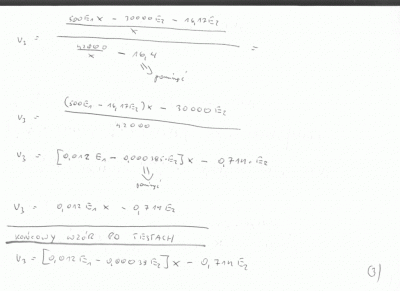 500E₁x - 30000E₂ - 14,17E₂
x
V₃ = =
42000
x - 16,4
pominąć
(500E₁ - 14,17E₂)x - 30000E₂
V₃ =
42000
V₃ = [0,012E₁ - 0,000385E₂]x - 0,714·E₂
pominąć
V₃ = 0,012E₁x - 0,714E₂
KOŃCOWY WZÓR PO TESTACH
V₃ = [0,012E₁ - 0,00033E₂]x - 0,714E₂
(3)